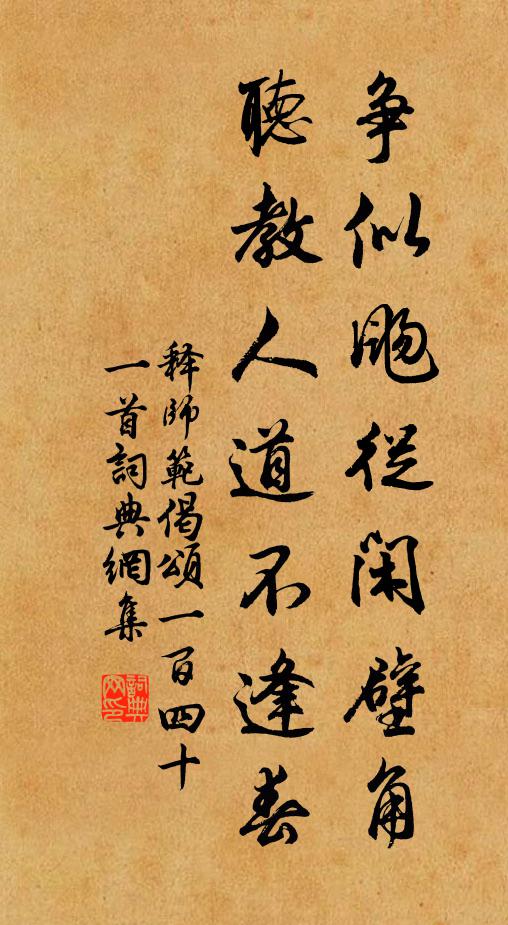 争似飏從閑壁角
聽教人道不逢春
释師範偈頌一百四十
一首詞典網集
詞典網印